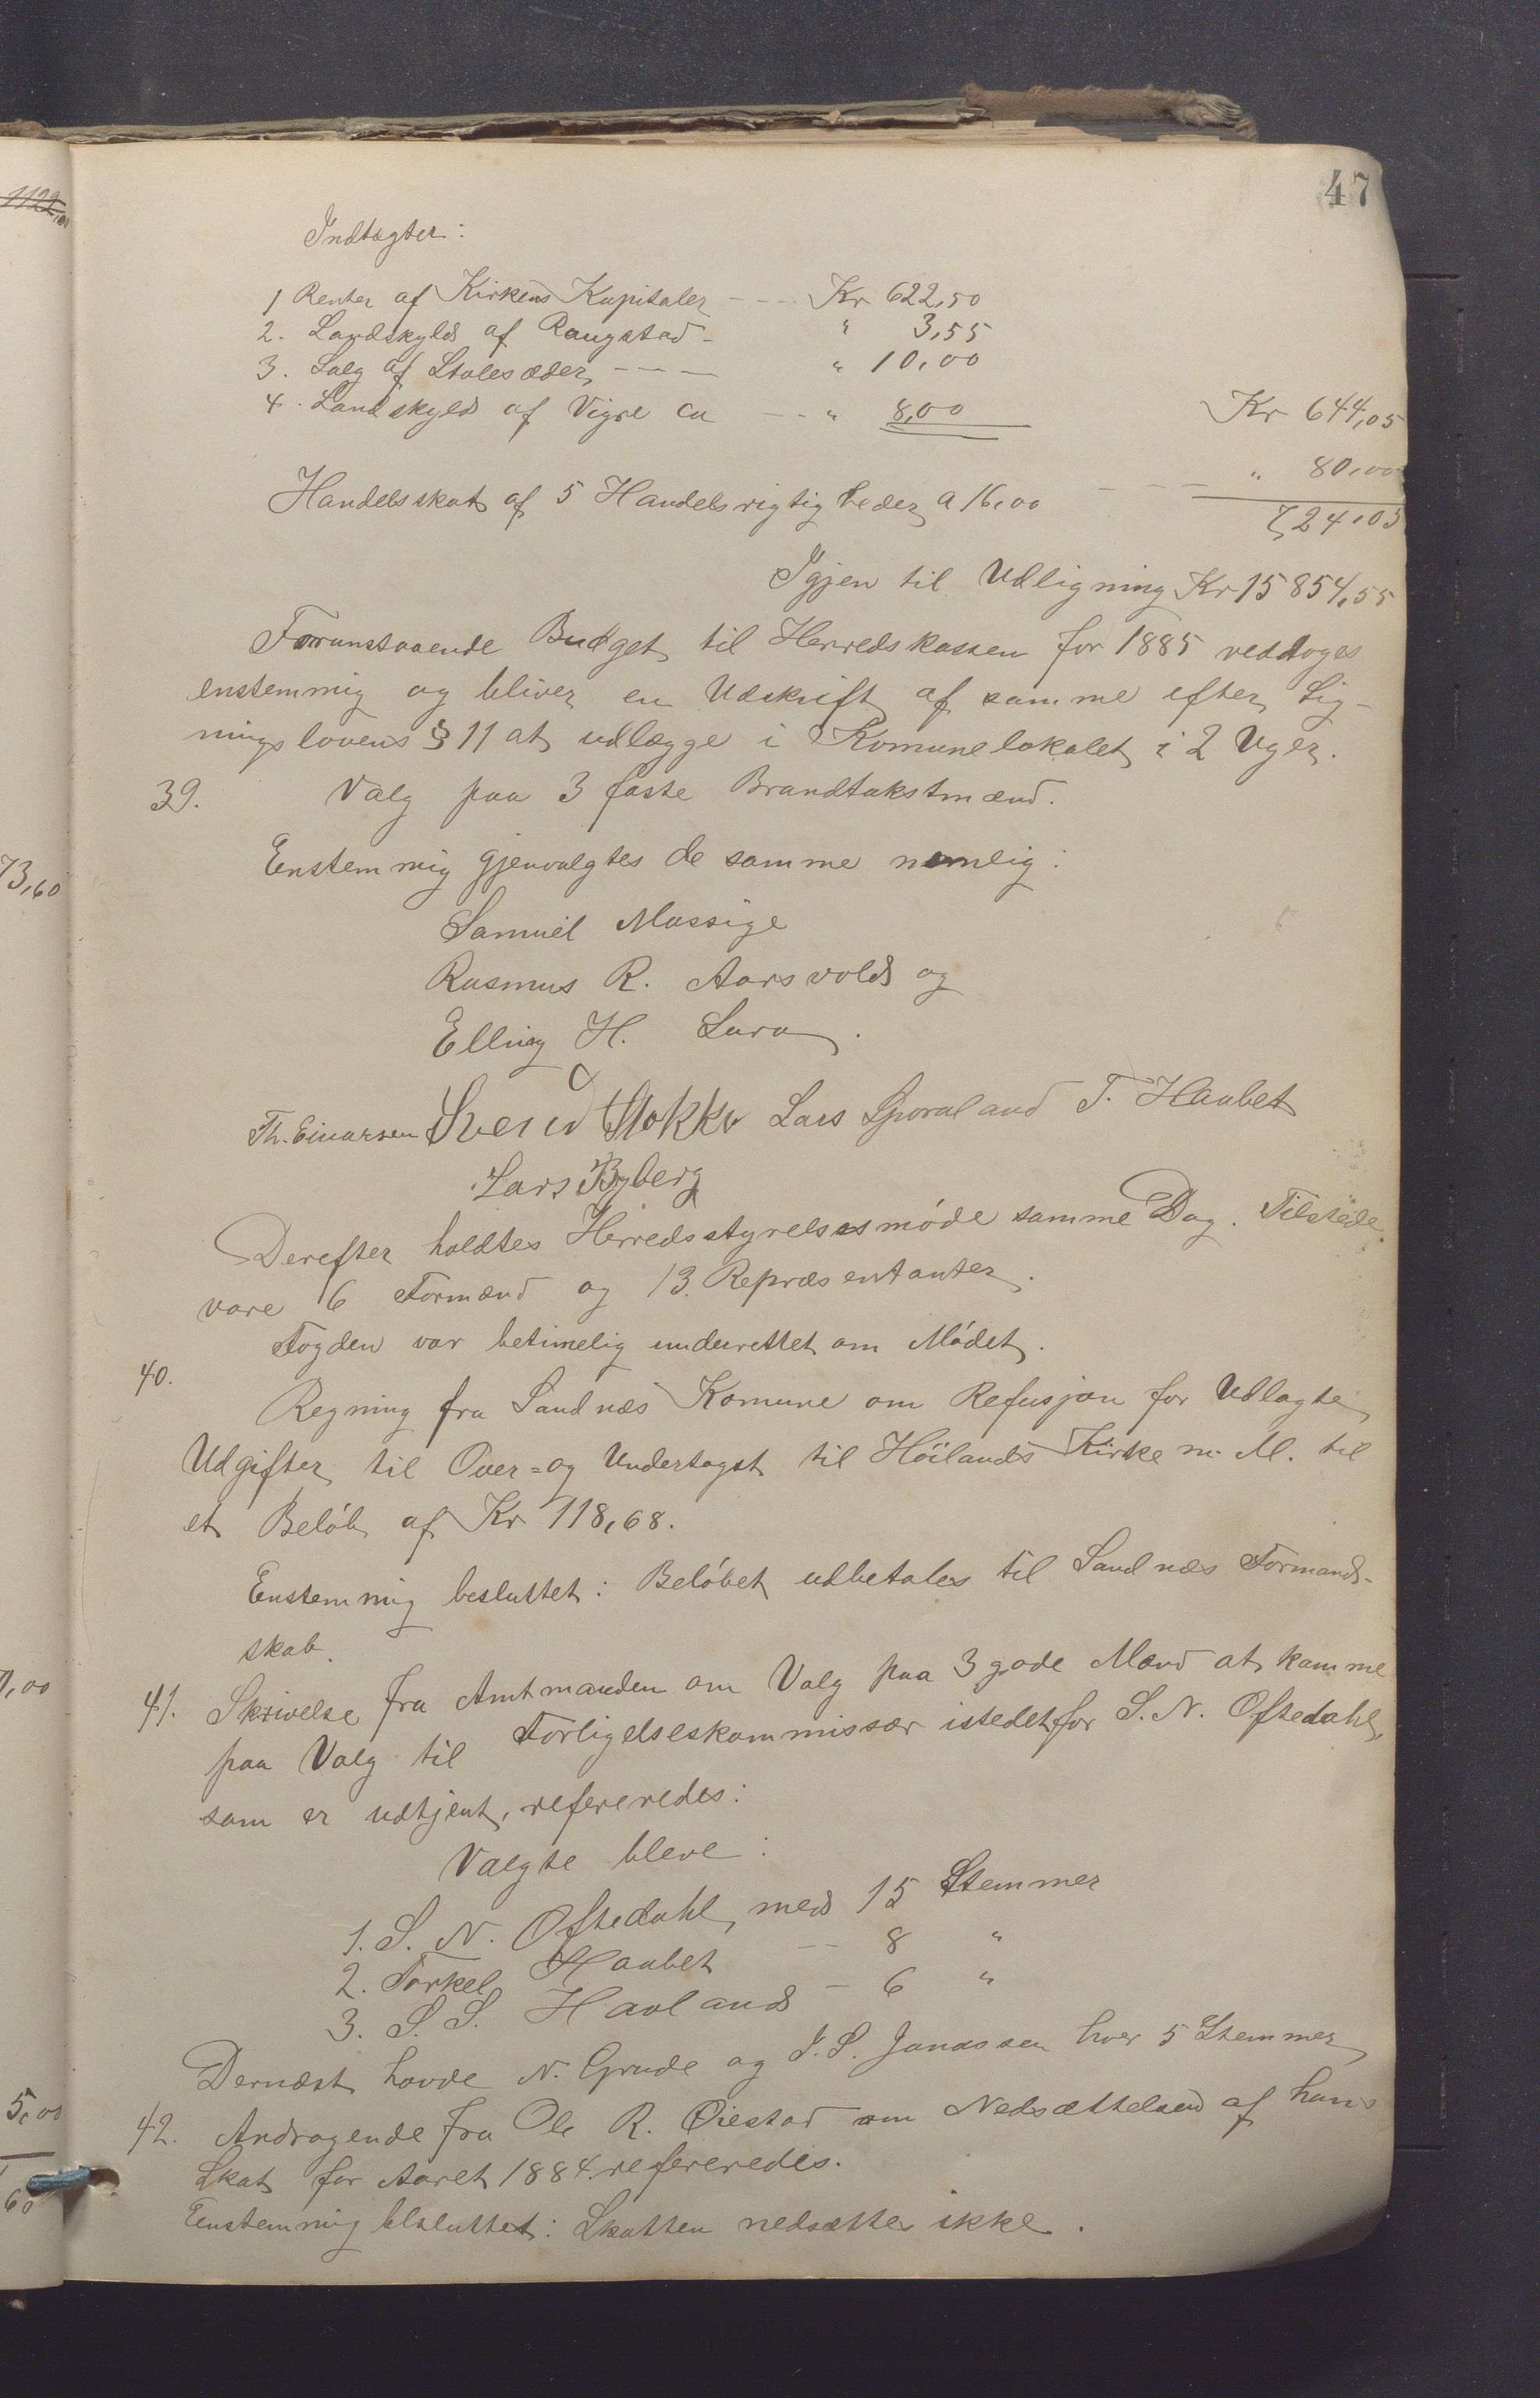 47
1122,00
Indtægter:
1 Renter af Kirkens Kapitaler - - - Kr 622,50
2. Landskyld af Raugstad - " 3,55
3. Salg af Stolesæder, - - - " 10,00
4. Landskyld af Vigre ca - - " 8,00 Kr 644,05
Handelsskat af 5 Handelsrigtigheder a 16,00 - - - " 80,00
724,05
Igjen til Udligning Kr 15854,55
Foranstaaende Budget til Herredskassen for 1885 vedtoges
enstemmig og bliver en Udskrift af samme efter Lig-
ningslovens § 11 at udlægge i Komunelokalet i 2 Uger.
39. Valg paa 3 faste Brandtakstmænd.
73,60
Enstemmig gjenvalgtes de samme nemlig:
Samuel Massige
Rasmus R. Aarsvold og
Elling H. Lura.
Th. Einarsen Svend Stokke Lars Sporaland T. Haabet
Lars Byberg
Derefter holdtes Herredsstyrelsesmöde samme Dag. Tilstede
vare 6 Formænd og 13 Repræsentanter.
Fogden var betimelig underrettet om Mödet.
40.
Regning fra Sandnæs Komune om Refusjon for Udlagte
Udgifter til Over= og Undertagst til Höilands Kirke m. M. til
et Belöb af Kr 118,68.
Enstemmig besluttet: Belöbet udbetales til Sandnæs Formand-
skab.
41. Skrivelse fra Amtmanden om Valg paa 3 gode Mænd at komme
paa Valg til Forligelseskommissær istedetfor S. N. Oftedahl,
som er udtjent, refereredes:
Valgte bleve:
1. S. N. Oftedahl, med 15 Stemmer
2. Torkel Haabet - - 8 "
3. S. S. Havland - 6 "
Dernæst havde N. Grude og J. S. Jonassen hver 5 Stemmer
5,00
42. Andragende fra Ole R. Öiestad om Nedsættelsen af hans
Skat for Aaret 1884 refereredes.
60
Enstemmig besluttet: Skatten nedsættes ikke.